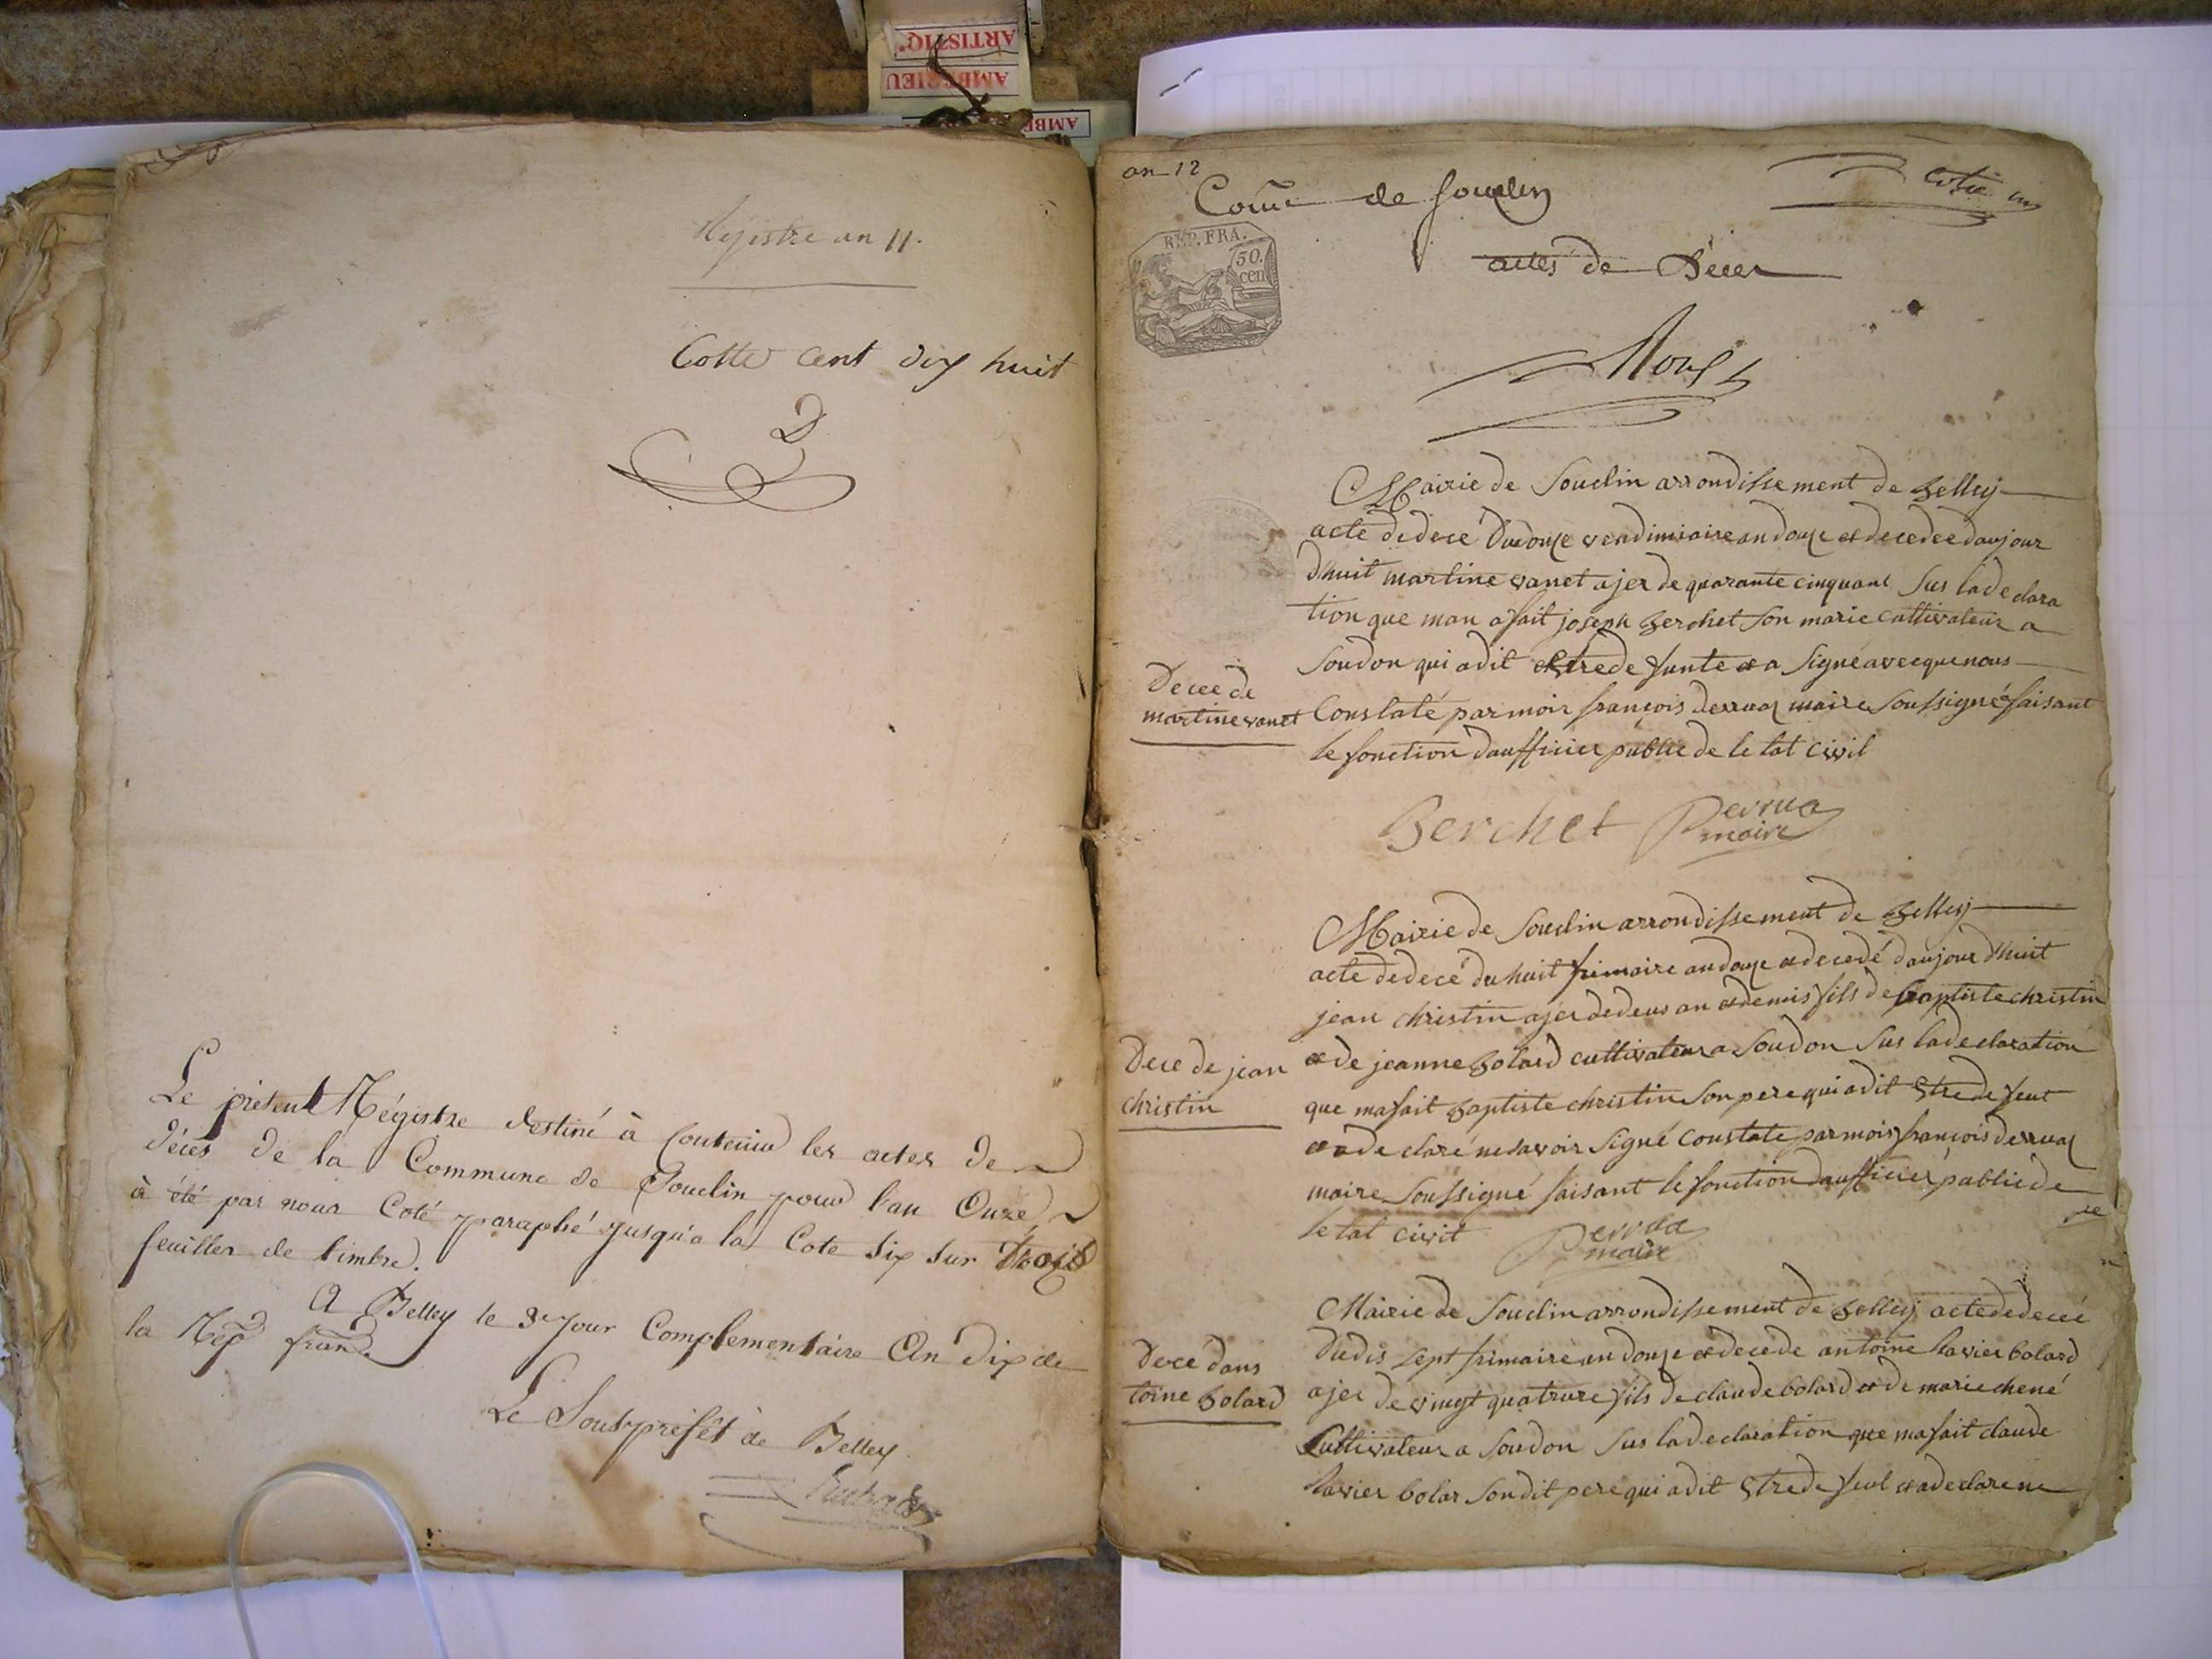 ARTISTIQ'
AMBERIEU
AMBE
Régistre an 11.
Cotte cent dix huit
Le présent Régistre destiné à contenir les actes de
décès de la Commune de Souclin pour l'an Onze
à été par nous Coté paraphé jusqu'a la Cote six sur trois
feuilles de timbre.
A Belley le 3e Jour Complementaire An dix de
la Rep franc
Le Souspréfêt de Belley
an 12
Cotte un
Coñe de souclin
REP. FRA.
50.
cen
actes de Décès
Mairie de Souclin arrondissement de Belley
acte dedecé Du douze vendimiaire an douze et decedee daujour
dhuit martine vanet ajer de quarante cinquant Sus ladeclara
tion que man afait joseph Berchet Son marie cultivateur a
Soudon qui adit Estre de funte et a Signé avecque nous
Constaté parmoir françois derruaz maire Soussigné faisant
le fonction daufficier public de le tat civil
Decee de
martine vanet
Berchet Perrua
maire
Mairie de Souclin arrondissement de Belley
acte dedecé du huit frimaire an douze et decedé daujour dhuit
jean christin ajer dedeus an et demis fils de baptiste christin
et de jeanne Bolard cultivateur a Soudon Sus ladeclaration
que mafait Baptiste christin Son pere qui adit Estre de feut
et a de claré ne savoir Signé Constate par mois françois derruaz
maire Soussigné faisant le fonction daufficier public de
le tat civil
Dece de jean
christin
Perrua
maire
Mairie de Souclin arrondissement de Belley acte dedeceé
du dis sept frimaire an douze et decede antoine Xavier bolard
ajer de vingt quatrure fils de claude bolard et de marie chené
Cultivateur a Soudon Sus ladeclaration que mafait claude
Xavier bolar Sondit pere qui adit Estre de feut et adeclare ne
Dece dans
toine Bolard